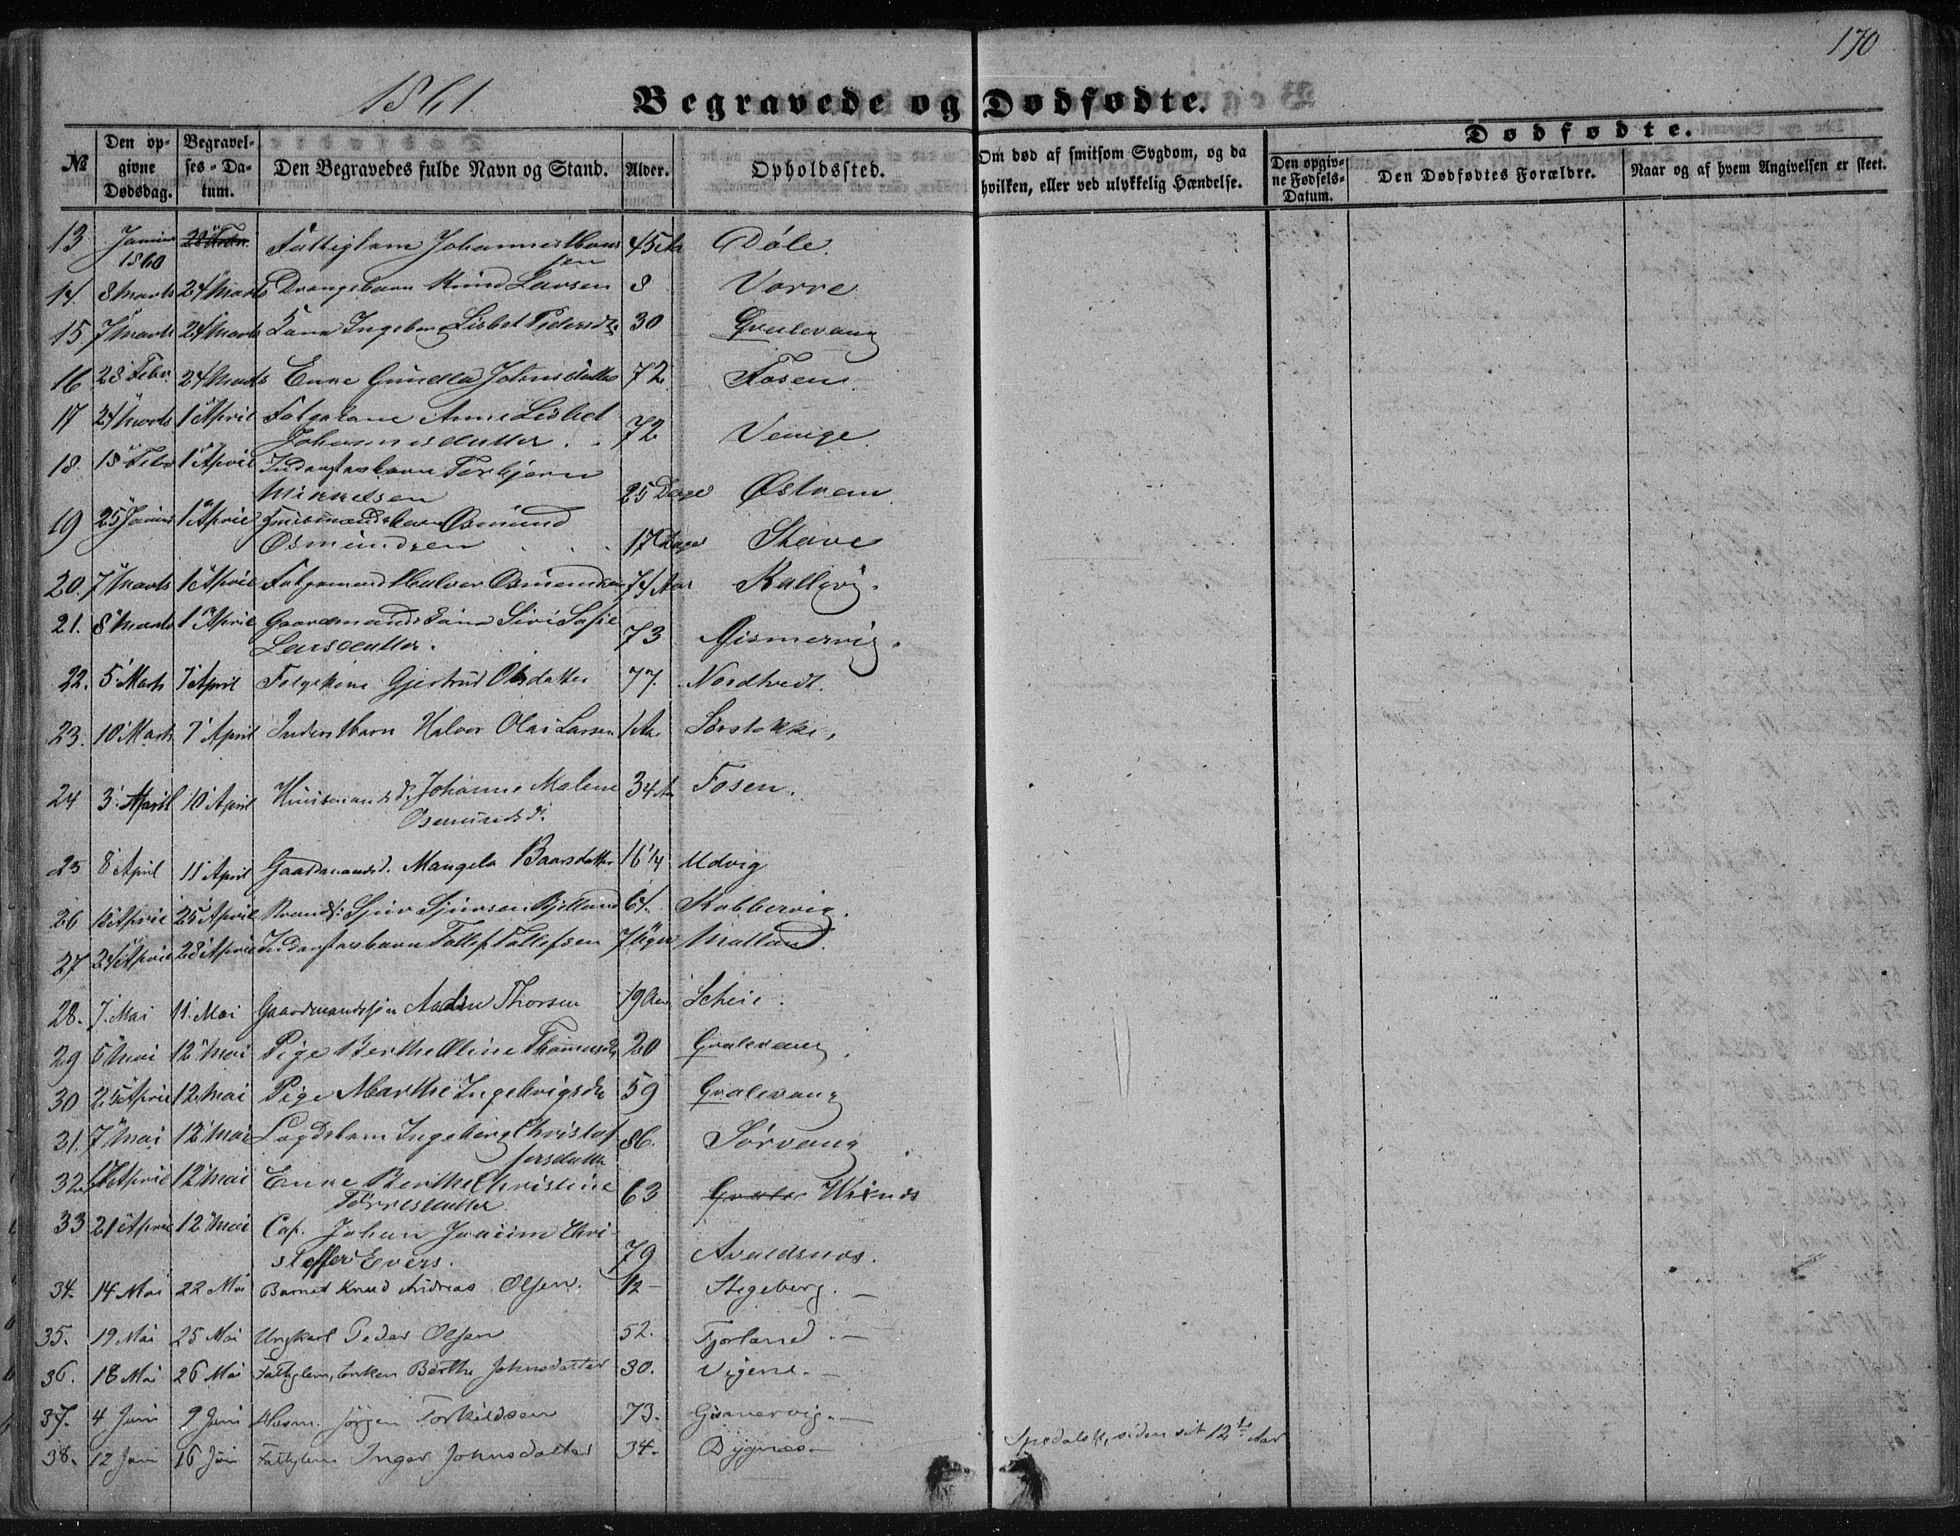 170
1861.
Begravede og Dødfødte.
№
Den opgivne Dødsdag.
Begravelses-Datum.
Den Begravedes fulde Navn og Stand.
Alder.
Opholdssted.
Om død af smitsom Sygdom, og da hvilken, eller ved ulykkelig Hændelse.
Dødfødte.
Den opgivne Fødsels-Datum.
Den Dødfødtes Forældre.
Naar og af hvem Angivelsen er skeet.
13 1860 Fattiglem Johannes Hansen 45 Aar Døle.
14. 8 Marts 24 Marts Drengebarn Knud Larsen 8 Vorre
15. 7 Marts 24 Marts Kone Ingeborg Lisbet Pedersd. 30 Qvalevaag
16 28 Febr. 24 Marts Enke Gundla Johnsdatter 72 Fosen
17 24 Marts 1 April Folgekone Anne Lisbet
Johannesdatter. 72 Veuge.
18. 15 Febr 1 April Inderstesbarn Torbjørn
Mikkelsen 25 Dage Østrem
19 25 Januar 1 April Huusmandsbarn Osmund
Osmundsen 17 Dage Stave
20. 7 Marts 1 April Folgemand Halvor Osmundsen 74 Aar Kallevig.
21. 8 Marts 1 April Gaardmandskone Siri Sofie
Larsdatter. 73 Gismervig.
22. 5 Marts 7 April Folgekone Gjertrud Olsdatter 77. Nordtvedt.
23. 10 Marts 7 April Inderstbarn Halvor Olai Larsen 1 Aar Sørstokke,
24 3 April 10 April Huusmandsd. Johanne Malene
Osmundsd. 34 Aar Fosen.
25 8 April 11 April Gaardmandsd. Mangela Baarsdatter 16 1/4 Udvig
26 25 April Sjur Sjursen Bjelland 64. Kobbervig.
27 24 April 28 April Inderstesbarn Tollef Tollefsen 7 Uger Matland.
28. 7. Mai 11. Mai Gaardmandssøn Aadne Thorsen 19 Aar Scheie.
29 5 Mai 12 Mai Pige Berthe Oline Thomasd. 20 Qvalevaag.
30 25 April 12 Mai Pige Marthe Ingebrigsd. 59 Qvalevaag
31. 7 Mai 12 Mai Lægdslem Ingeborg Christof
fersdatter 86. Sørvaag
32 April 12 Mai Enke Berthe Christine
Tørresdatter. 63
33 21 April 12 Mai Cap. Johan Joacim Chri-
stoffer Evers. 79 Avaldsnes.
34. 14 Mai 22 Mai Barnet Knud Andreas Olsen. 1/2 - Stegeberg. -
35. 19 Mai 25 Mai Ungkarl Peder Olsen 52. Tjorland. -
36. 18 Mai 26 Mai Fattiglem, enken Berthe Johnsdatter 30. Vigene. -
37. 4 Juni 9 Juni Husm. Jørgen Torkildsen 73. Gismervig. -
38. 12 Juni 16 Juni Fattiglem Inger Johnsdatter 34. Dygnæs - Spedalsk, siden sit 12te Aar